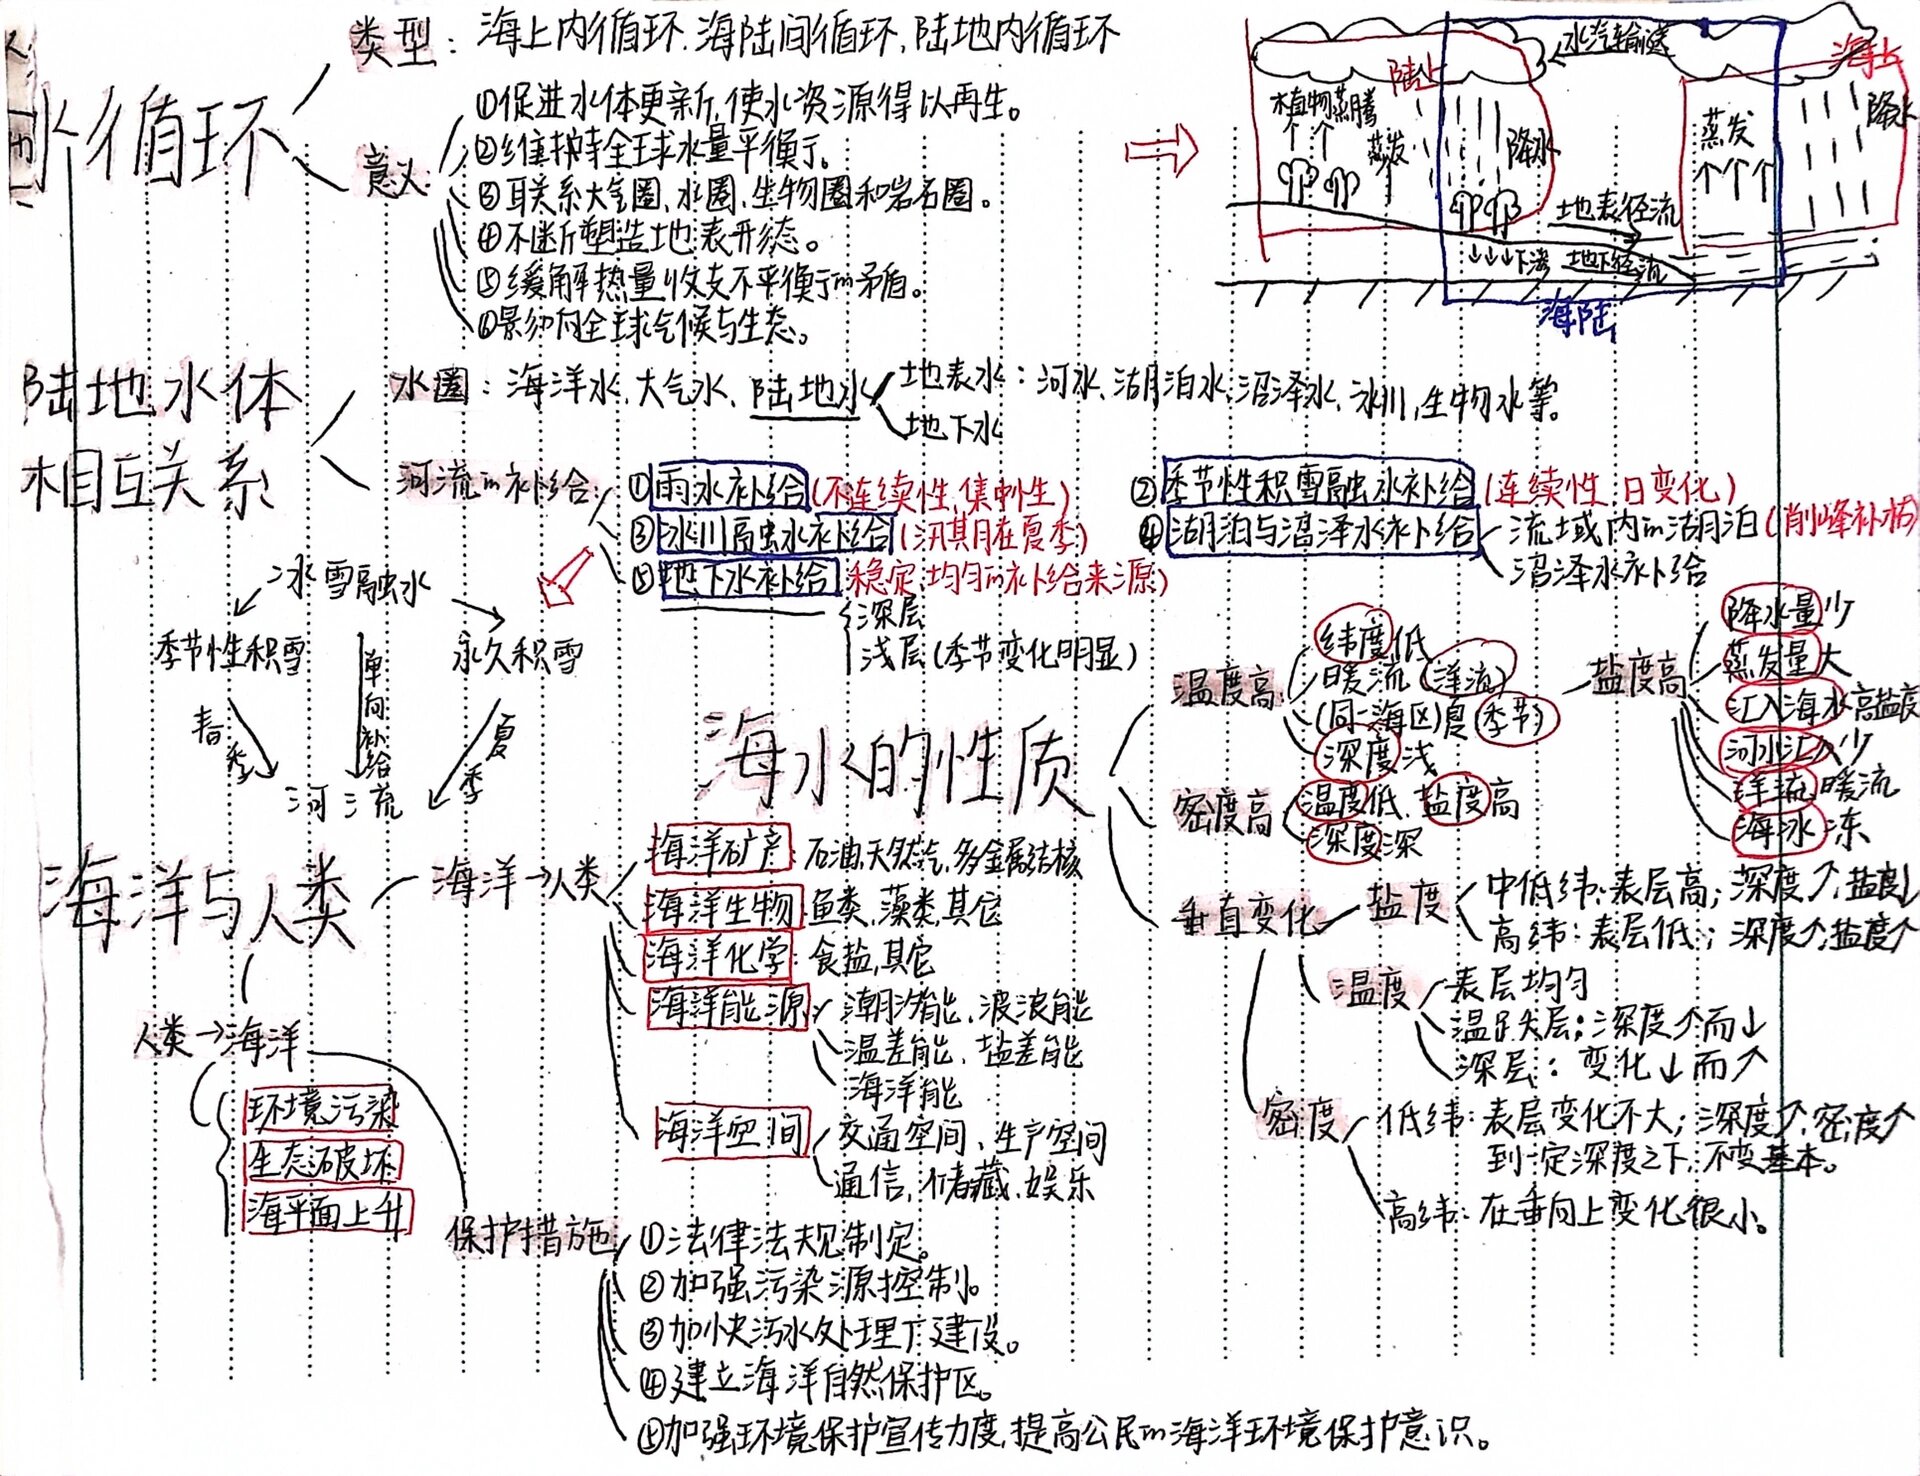 水循环
类型：海上内循环、海陆间循环、陆地内循环
意义
①促进水体更新，使水资源得以再生。
②维护持全球水量平衡。
③联系大气圈、水圈、生物圈和岩石圈。
④不断塑造地表形态。
⑤缓解热量收支不平衡的矛盾。
⑥影响全球气候与生态。
水汽输送
陆上
海上
植物蒸腾
蒸发
降水
蒸发
降水
地表径流
下渗 地下径流
海陆
陆地水体
相互关系
水圈：海洋水、大气水、陆地水
地表水：河水、湖泊水、沼泽水、冰川，生物水等。
地下水
河流的补给：
①雨水补给（不连续性，集中性）
②季节性积雪融水补给（连续性 日变化）
③冰川融水补给（汛期在夏季）
④湖泊与沼泽水补给
流域内的湖泊（削峰补枯）
沼泽水补给
⑤地下水补给（稳定、均匀的补给来源）
深层
浅层（季节变化明显）
冰雪融水
季节性积雪
永久积雪
春季
单向补给
夏季
河流
海水的性质
温度高
纬度低
暖流（洋流）
（同一海区）夏（季节）
深度浅
盐度高
降水量少
蒸发量大
汇入海水高盐度
河水汇入少
洋流暖流
海冰冻
密度高
温度低、盐度高
深度深
垂直变化
盐度
中低纬：表层高；深度↑，盐度↓
高纬：表层低；深度↑，盐度↑
温度
表层均匀
温跃层：深度↑而↓
深层：变化↓而↑
密度
低纬：表层变化不大；深度↑，密度↑
到一定深度之下，不变基本。
高纬：在垂向上变化很小。
海洋与人类
海洋→人类
海洋矿产：石油、天然气、多金属结核
海洋生物：鱼类、藻类、其它
海洋化学：食盐，其它
海洋能源
潮汐能、波浪能
温差能、盐差能
海洋能
海洋空间
交通空间、生产空间
通信，储藏、娱乐
人类→海洋
环境污染
生态破坏
海平面上升
保护措施
①法律法规制定。
②加强污染源控制。
③加快污水处理厂建设。
④建立海洋自然保护区。
⑤加强环境保护宣传力度，提高公民的海洋环境保护意识。